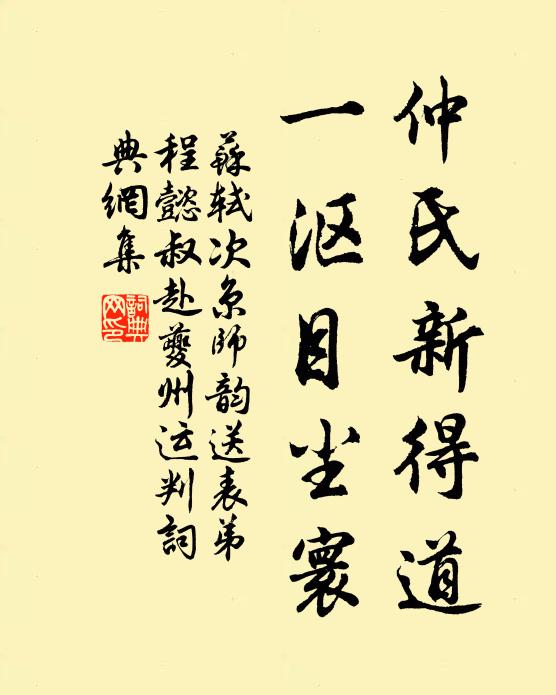 仲氏新得道
一沤目尘寰
蘇軾次京師韵送表弟
程懿叔赴夔州运判詞
典網集
詞典网印